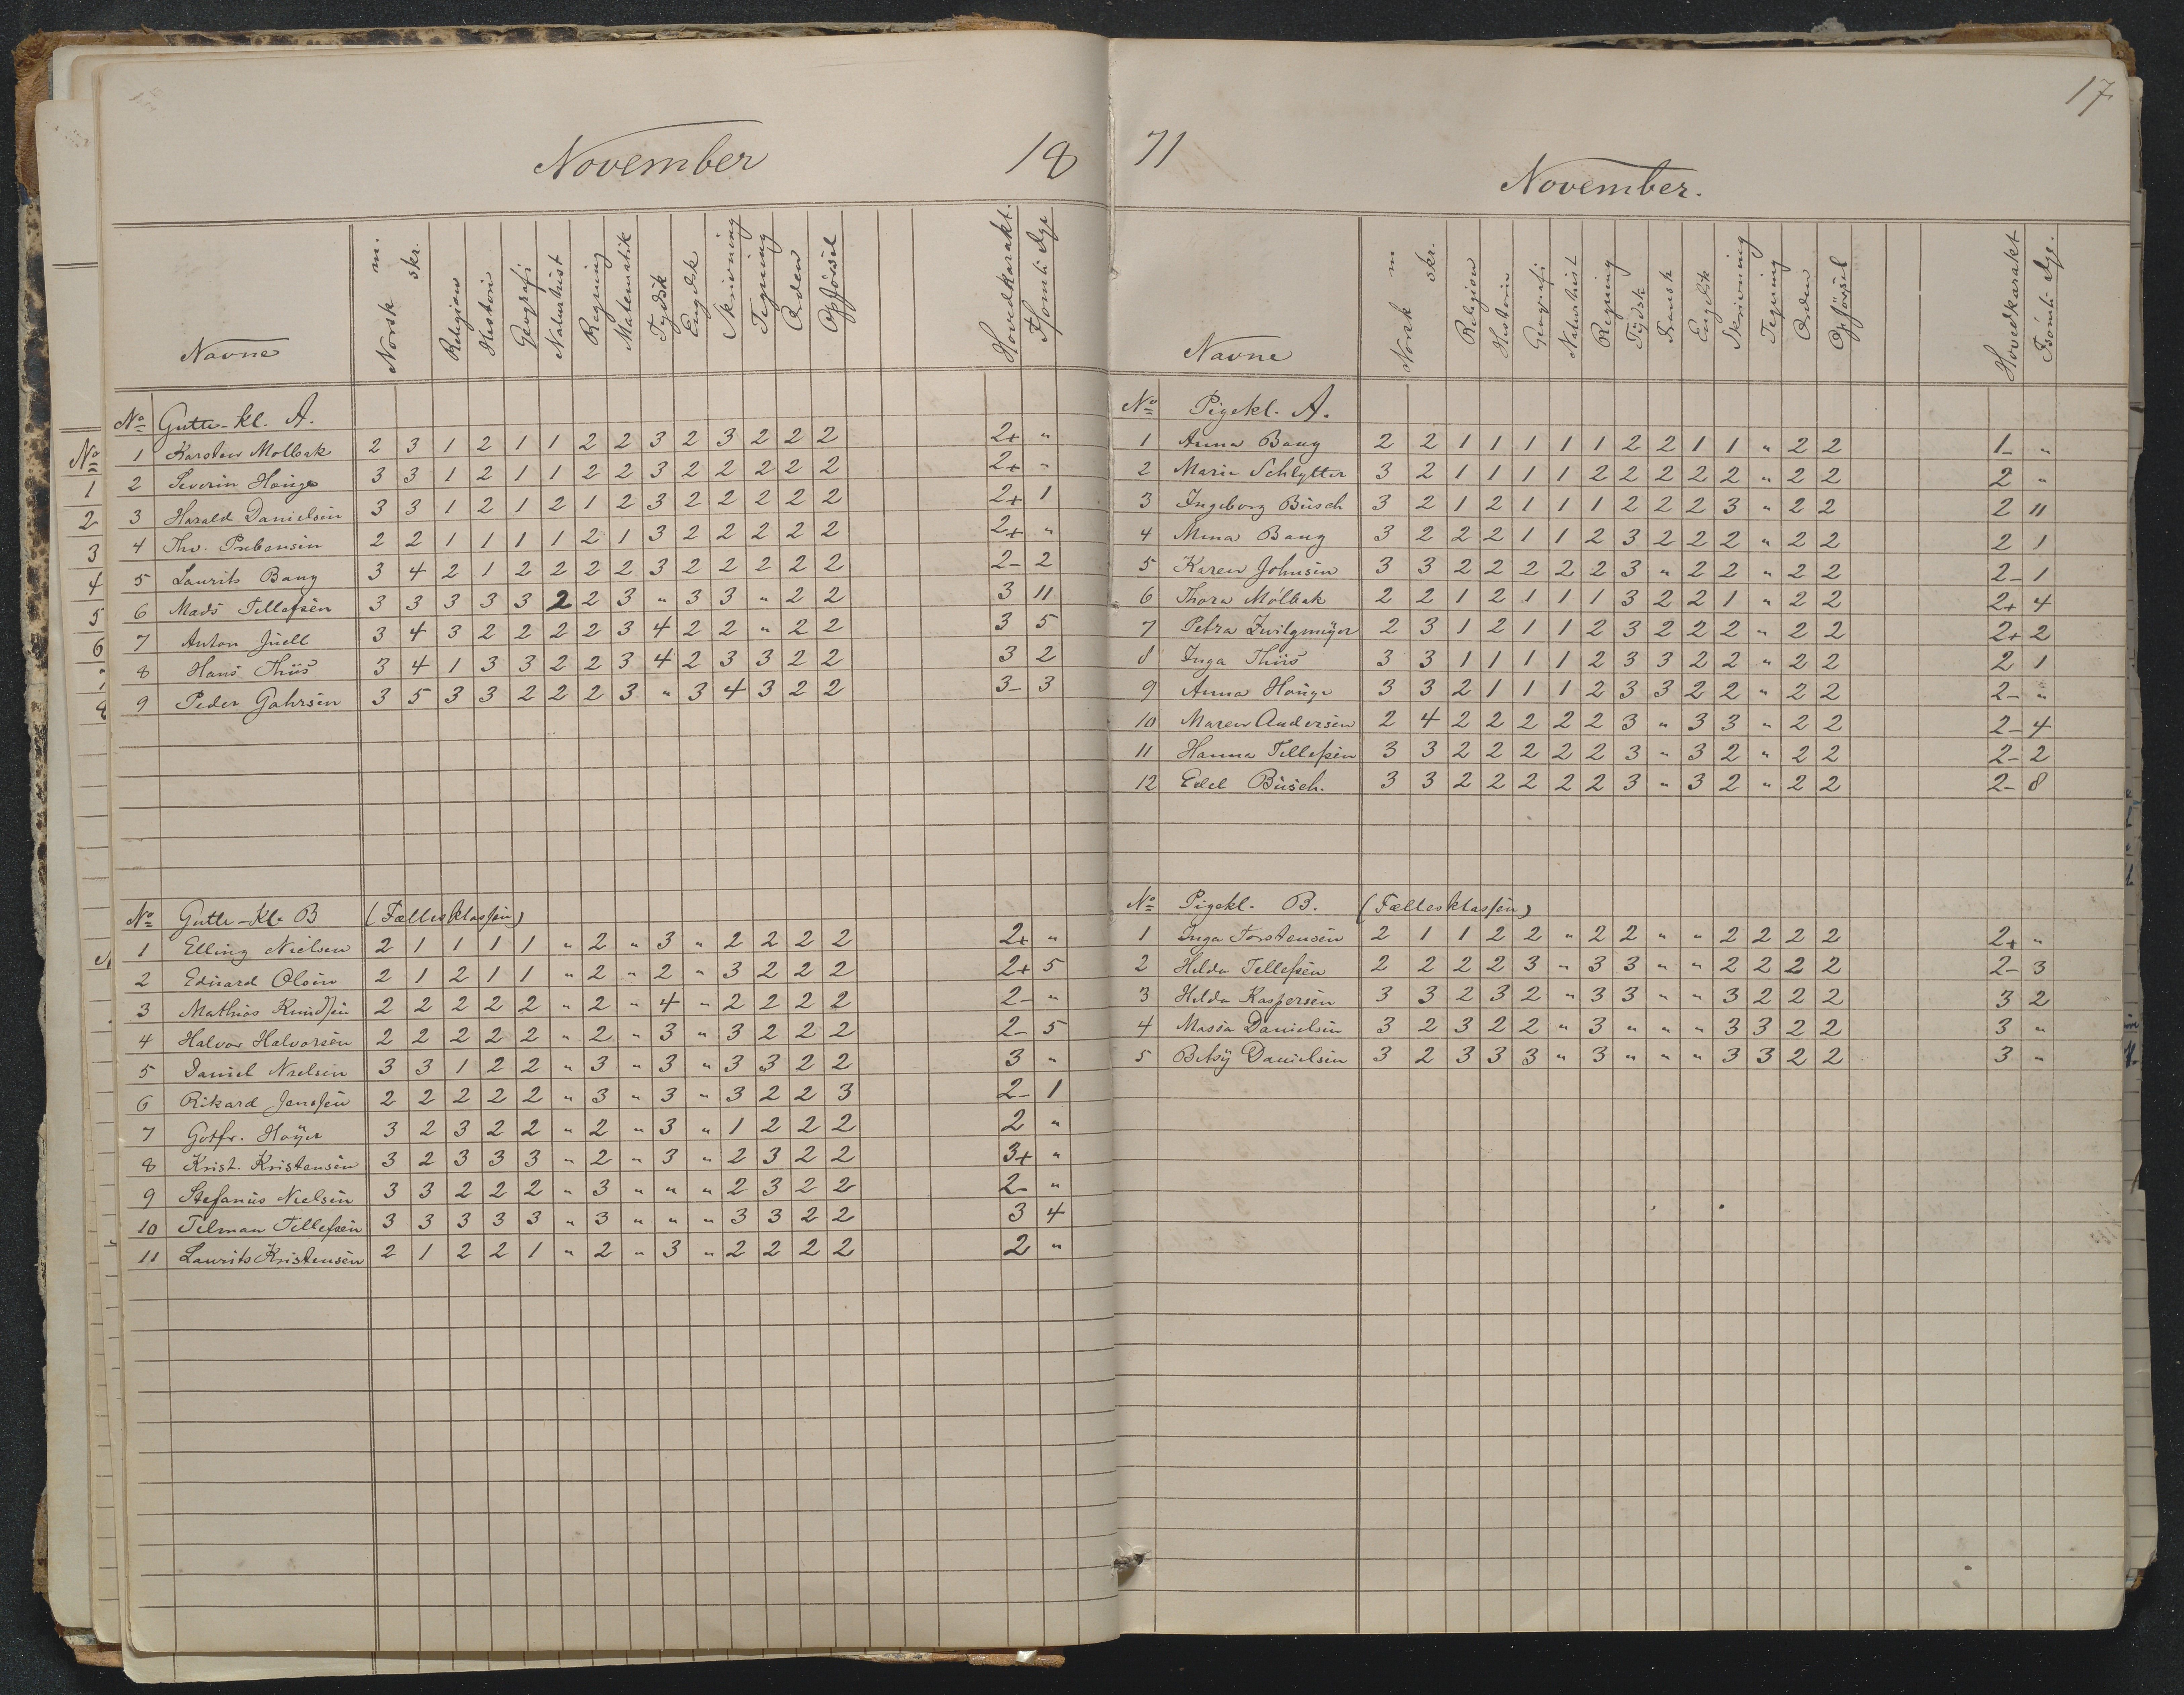 November 18
Navne Norsk m. skr. Religion Historie Geografi Naturhist Regning Matematik Tydsk Engelsk Skrivning Tegning Orden Opførsel Hovedkarakt. Forsömte Dge
No Gutte-kl. A.
1 Karsten Molbak 2 3 1 2 1 1 2 2 3 2 3 2 2 2 2+ "
2 Severin Houge 3 3 1 2 1 1 2 2 3 2 2 2 2 2 2+ "
3 Harald Danielsen 3 3 1 2 1 2 1 2 3 2 2 2 2 2 2+ 1
4 Thv. Prebensen 2 2 1 1 1 1 2 1 3 2 2 2 2 2 2+ "
5 Laurits Bang 3 4 2 1 2 2 2 2 3 2 2 2 2 2 2- 2
6 Mads Tellefsen 3 3 3 3 3 2 2 3 " 3 3 " 2 2 3 11
7 Anton Juell 3 4 3 2 2 2 2 3 4 2 2 " 2 2 3 5
8 Hans Thiis 3 4 1 3 3 2 2 3 4 2 3 3 2 2 3 2
9 Peder Gahrsen 3 5 3 3 2 2 2 3 " 3 4 3 2 2 3- 3
No Gutte-Kl. B (Fællesklassen)
1 Elling Nielsen 2 1 1 1 1 " 2 " 3 " 2 2 2 2 2+ "
2 Eduard Olsen 2 1 2 1 1 " 2 " 2 " 3 2 2 2 2+ 5
3 Mathias Knudsen 2 2 2 2 2 " 2 " 4 " 2 2 2 2 2- "
4 Halvor Halvorsen 2 2 2 2 2 " 2 " 3 " 3 2 2 2 2- 5
5 Daniel Nielsen 3 3 1 2 2 " 3 " 3 " 3 3 2 2 3 "
6 Rikard Jenssen 2 2 2 2 2 " 3 " 3 " 3 2 2 3 2- 1
7 Gotfr. Høyer 3 2 3 2 2 " 2 " 3 " 1 2 2 2 2 "
8 Krist. Kristensen 3 2 3 3 3 " 2 " 3 " 2 3 2 2 3+ "
9 Stefanus Nielsen 3 3 2 2 2 " 3 " " " 2 3 2 2 2- "
10 Telman Tellefsen 3 3 3 3 3 " 3 " " " 3 3 2 2 3 4
11 Laurits Kristensen 2 1 2 2 1 " 2 " 3 " 2 2 2 2 2 "
17
71 November.
Navne Norsk m skr. Religion Historie Geografi Naturhist Regning Tydsk Fransk Engelsk Skrivning Tegning Orden Opførsel Hovedkarakt Forsömte Dge.
No Pigekl. A.
1 Anna Bang 2 2 1 1 1 1 1 2 2 1 1 " 2 2 1- "
2 Marie Schlytter 3 2 1 1 1 1 2 2 2 2 2 " 2 2 2 "
3 Ingeborg Busch 3 2 1 2 1 1 1 2 2 2 3 " 2 2 2 11
4 Mina Bang 3 2 2 2 1 1 2 3 2 2 2 " 2 2 2 1
5 Karen Johnsen 3 3 2 2 2 2 2 3 " 2 2 " 2 2 2- 1
6 Thora Mólbak 2 2 1 2 1 1 1 3 2 2 1 " 2 2 2+ 4
7 Petra Zwilgmeyer 2 3 1 2 1 1 2 3 2 2 2 " 2 2 2+ 2
8 Inga Thiis 3 3 1 1 1 1 2 3 3 2 2 " 2 2 2 1
9 Anna Houge 3 3 2 1 1 1 2 3 3 2 2 " 2 2 2- "
10 Maren Andersen 2 4 2 2 2 2 2 3 " 3 3 " 2 2 2- 4
11 Hanna Tellefsen 3 3 2 2 2 2 2 3 " 3 2 " 2 2 2- 2
12 Edel Busch. 3 3 2 2 2 2 2 3 " 3 2 " 2 2 2- 8
No Pigekl. B. (Fællesklassen)
1 Inga Torstensen 2 1 1 2 2 " 2 2 " " 2 2 2 2 2+ "
2 Helda Tellefsen 2 2 2 2 3 " 3 3 " " 2 2 2 2 2- 3
3 Helda Kaspersen 3 3 2 3 2 " 3 3 " " 3 2 2 2 3 2
4 Massa Danielsen 3 2 3 2 2 " 3 " " " 3 3 2 2 3 "
5 Betsy Danielsen 3 2 3 3 3 " 3 " " " 3 3 2 2 3 "